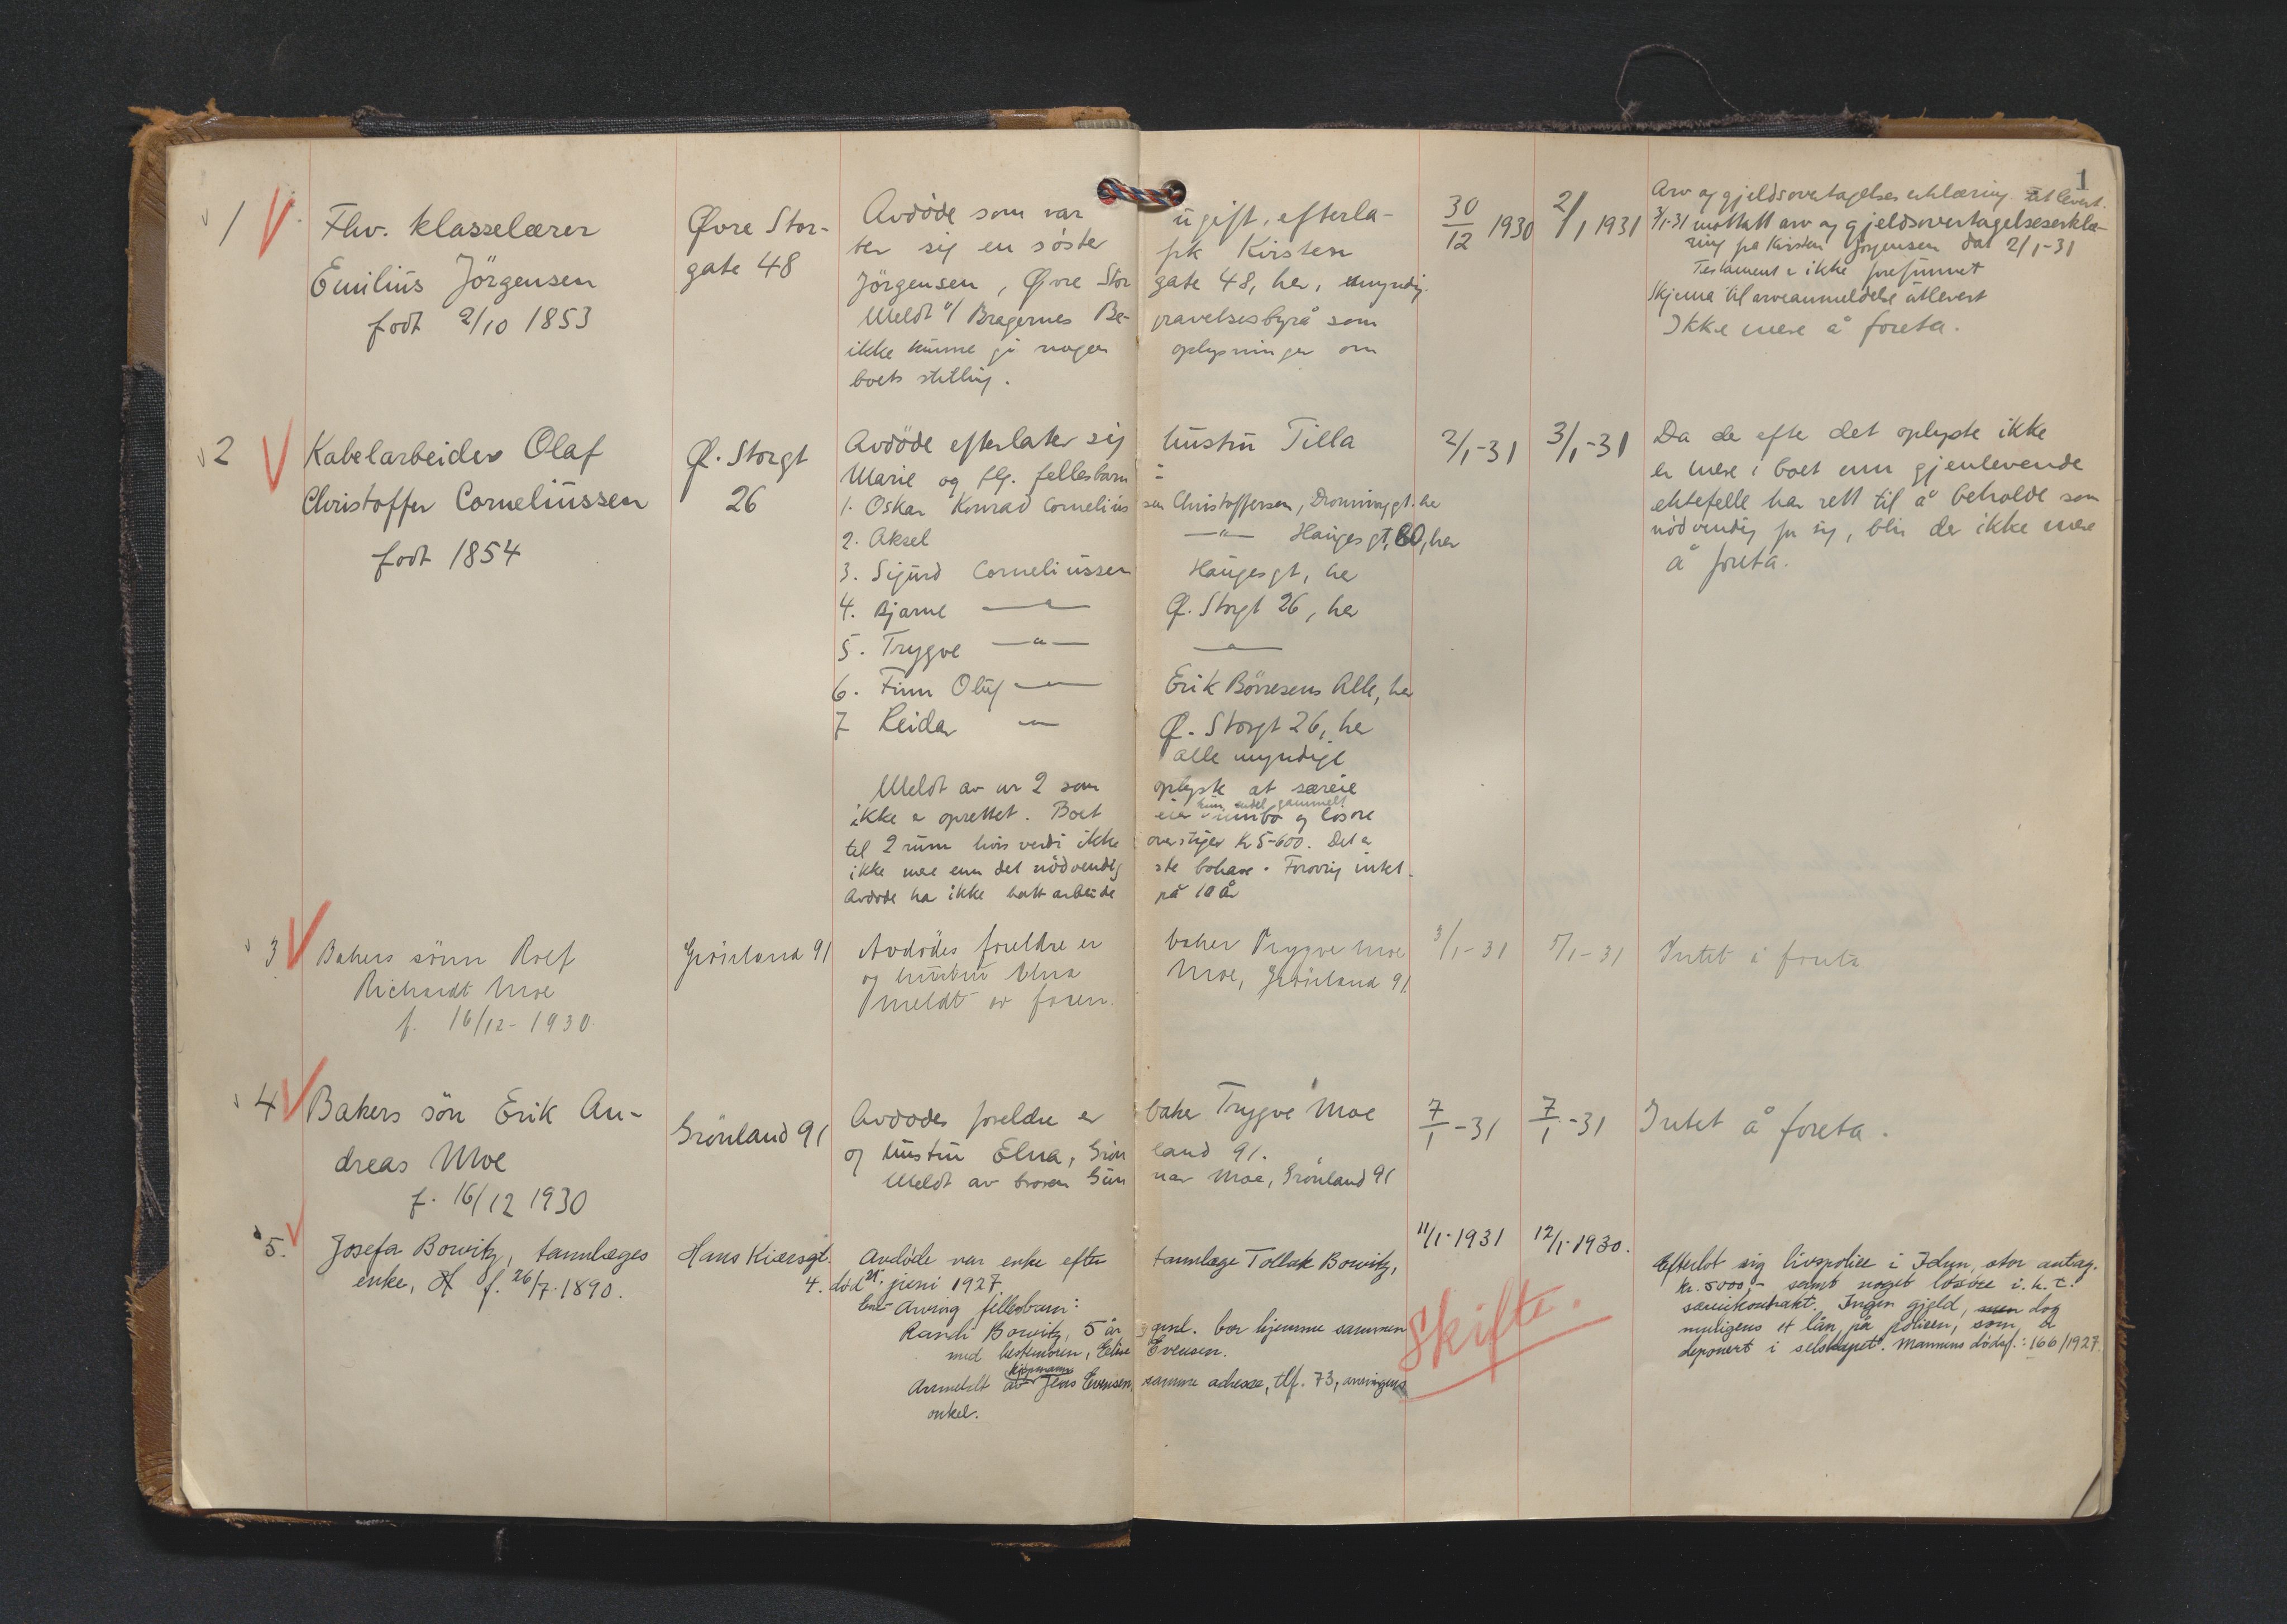 1
1 Fhv. klasselærer
Emilius Jörgensen
født 2/10 1853
Øvre Stor-
gate 48
Avdöde som var ugift, efterla-
ter sig en söster frk Kirsten
Jörgensen, Øvre Stor gate 48, her, myndig.
Meldt v/ Bragernes Be- gravelsesbyrå som
ikke kunne gi nogen oplysninger om
boets stilling.
30/12 1930
2/1 1931
Arv og gjeldsovertagelseserklæring utlevert.
3/1-31 mottatt arv og gjeldsovertagelseserklæ-
ring fra Kirsten Jörgensen dat 2/1-31
Testament er ikke forefunnet
Skjema til arveanmeldelse utlevert
Ikke mere å foreta.
2 Kabelarbeider Olaf
Christoffer Corneliussen
født 1854
Ø. Storgt
26
Avdöde efterlater sig hustru Tilla
Marie og flg. fellesbarn:
1. Oskar Konrad Cornelius sen Christoffersen, Dronninggt. her
2. Aksel —"— Haugesgt, 80, her
3. Sigurd Corneliussen Haugesgt, her
4. Bjarne —"— Ø. Storgt 26, her
5. Trygve —"— —"—
6. Finn Oluf —"— Erik Börresens Alle, her
7 Reidar —"— Ø. Storgt 26, her
alle myndige
Meldt av nr 2 som oplyste at særeie
ikke er oprettet. Boet eier kun endel gammelt innbo og lösöre
til 2 rum hvis verdi ikke overstiger kr 5-600. Det er
ikke mere enn det nödvendig ste bohave. Forövrig intet.
Avdöde har ikke hatt arbeide på 10 år
2/1-31
3/1-31
Da der efter det oplyste ikke
er mere i boet enn gjenlevende
ektefelle har rett til å beholde som
nödvendig for sig, blir der ikke mere
å foreta.
3 Bakers sönn Rolf
Richardt Moe
f. 16/12-1930
Grönland 91
Avdödes foreldre er baker Trygve Moe
og hustru Elna Moe, Grönland 91.
meldt av faren.
3/1-31
5/1-31
Intet å foreta
4 Bakers sön Erik An-
dreas Moe
f. 16/12 1930
Grönland 91
Avdödes foreldre er baker Trygve Moe
og hustru Elna, Grön land 91.
Meldt av broren Gun nar Moe, Grönland 91
7/1-31
7/1-31
Intet å foreta.
5. Josefa Borvitz, tannlæges
enke, f. 26/7.1890.
Hans Kiærsgt.
4.
Avdöde var enke efter tannlæge Tollak Borvitz,
död 21. juni 1927
Arving fellesbarn:
Randi Borvitz, 5 år gml. bor hjemme sammen
med bestemoren, Elise Evensen.
Anmeldt av kjöpmann Jens Evensen, samme adresse, tlf. 73, arvingens
onkel.
11/1-1931
12/1-1930.
Skifte.
Efterlot sig livspolise i Idun, stor antag.
kr. 5000,- samt noget lösöre i. h. t.
særeiekontrakt. Ingen gjeld, men dog
muligens et lån på polisen, som er
deponert i selskapet. Mannens dödsf.: 166/1927.